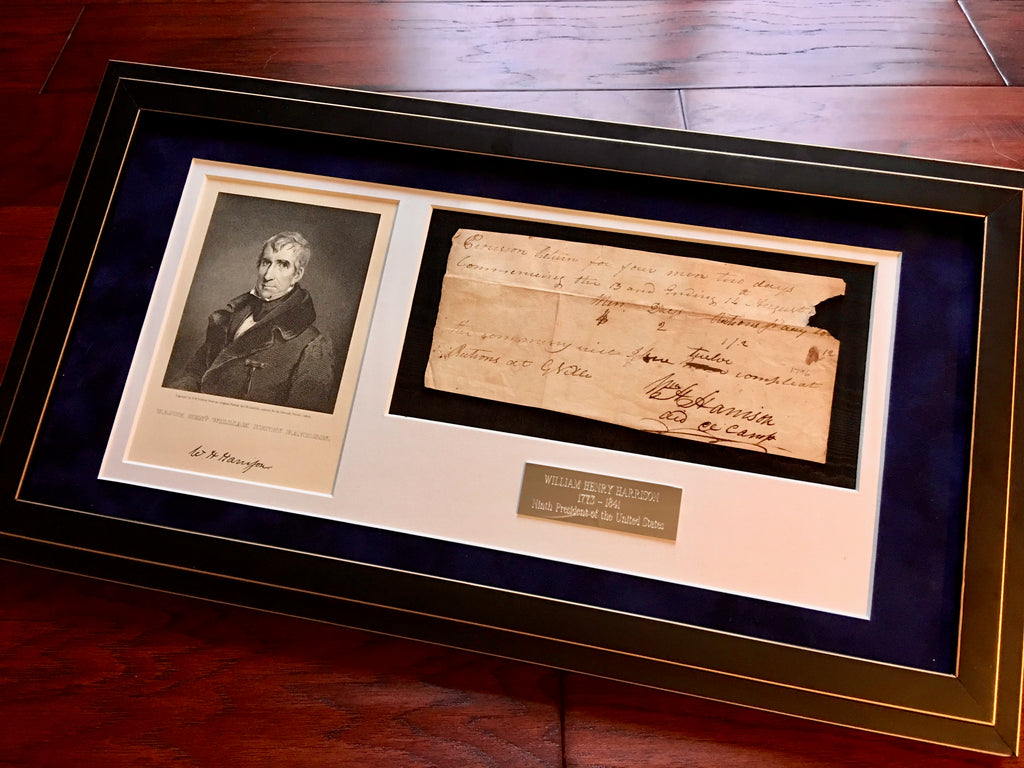 MAJOR GEN! WILLIAM HENRY HARRISON.
W H Harrison
Provision return for four men two days
Commencing the 13 and Ending 14 August
Men Days Rations pr day
2 1/2 12
1796
The commissary will Issue twelve compleat
Rations at G Ville
Wm H Harrison
aid de Camp
WILLIAM HENRY HARRISON
1773 - 1841
Ninth President of the United States